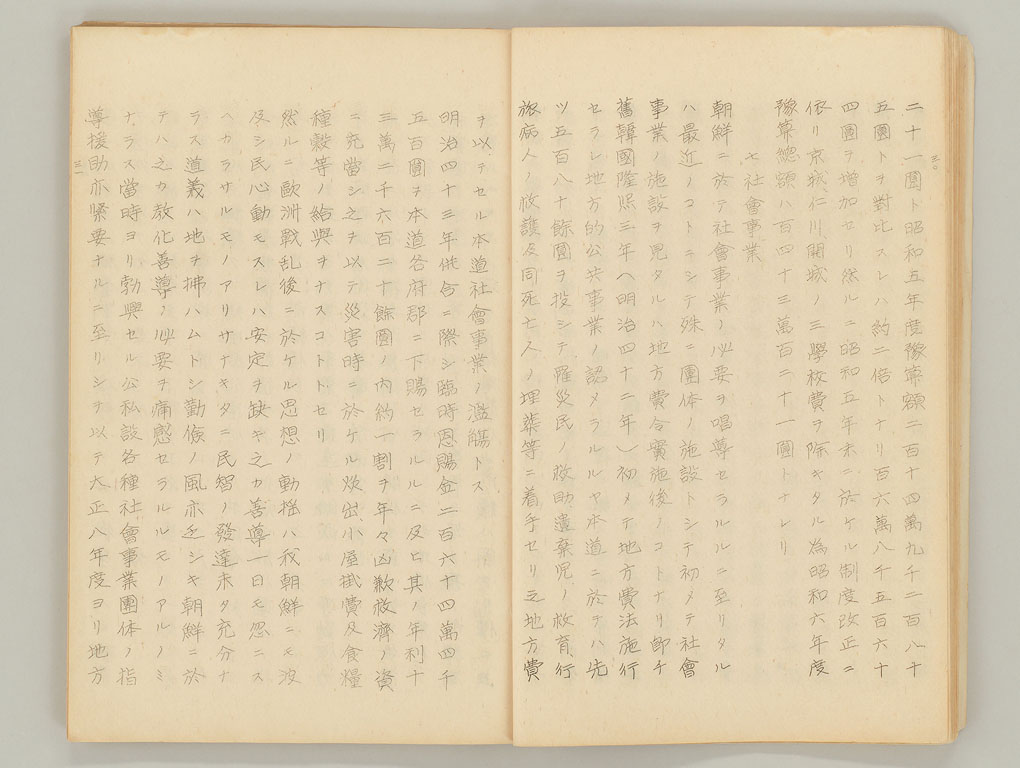 三〇
二十一圓ト昭和五年度豫算額二百十四萬九千二百八十
五圓トヲ對比スレハ約二倍トナリ百六萬八千五百六十
四圓ヲ增加セリ然ルニ昭和五年末ニ於ケル制度改正ニ
依リ京城仁川開城ノ三學校費ヲ除キタル為昭和六年度
豫算總額ハ百四十三萬百二十一圓トナレリ
七社會事業
朝鮮ニ於テ社會事業ノ必要ヲ唱導セラルルニ至リタル
ハ最近ノコトニシテ殊ニ團体ノ施設トシテ初メテ社會
事業ノ施設ヲ見タルハ地方費令實施後ノコトナリ卽チ
舊韓國隆熙三年（明治四十二年）初メテ地方費法施行
セラレ地方的公共事業ノ認メラルルヤ本道ニ於テハ先
ツ五百八十餘圓ヲ投シテ罹災民ノ救助遺棄児ノ救育行
旅病人ノ救護及同死亡人ノ埋葬等ニ着手セリ之地方費
三一
ヲ以テセル本道社會事業ノ濫觴トス
明治四十三年併合ニ際シ臨時恩賜金二百六十四萬四千
五百圓ヲ本道各府郡ニ下賜セラルルニ及ヒ其ノ年利十
三萬二千六百二十餘圓ノ内約一割ヲ年々凶歉救濟ノ資
ニ充當シ之ヲ以テ災害時ニ於ケル炊出小屋掛費及食糧
種穀等ノ給與ヲナスコトトセリ
然ルニ歐洲戰乱後ニ於ケル思想ノ動揺ハ我朝鮮ニモ波
及シ民心動モスレハ安定ヲ缺キ之カ善導一日モ忽ニス
ヘカラサルモノアリサナキタニ民智ノ發達未タ充分ナ
ラス道義ハ地ヲ拂ハムトシ勤儉ノ風亦乏シキ朝鮮ニ於
テハ之カ敎化善導ノ必要ヲ痛感セラルルモノアルノミ
ナラス當時ヨリ勃興セル公私設各種社會事業團体ノ指
導援助亦緊要ナルニ至リシヲ以テ大正八年度ヨリ地方